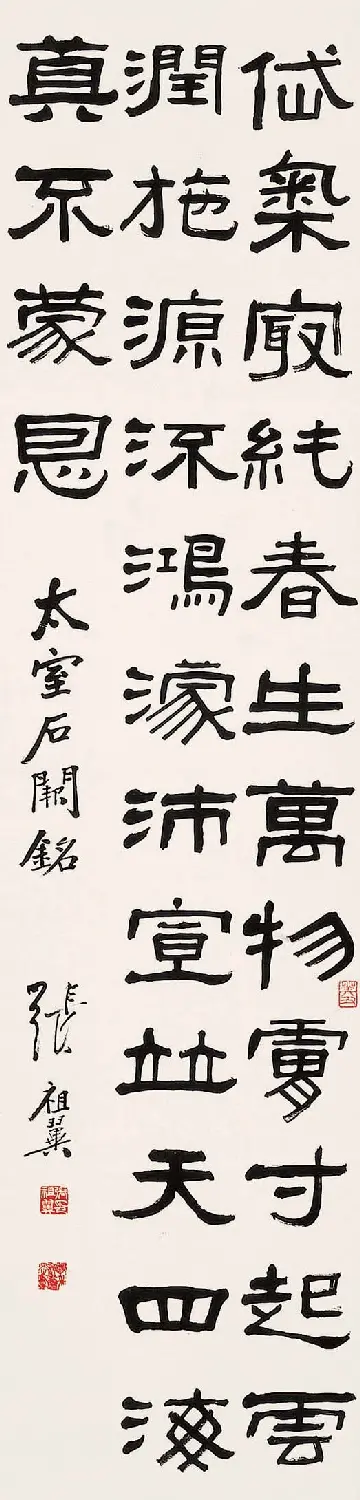 岱氣冣純春生萬物膚寸起雲
潤施源流鴻濛沛宣竝天四海
莫不蒙恩
太室石闕銘
張祖翼